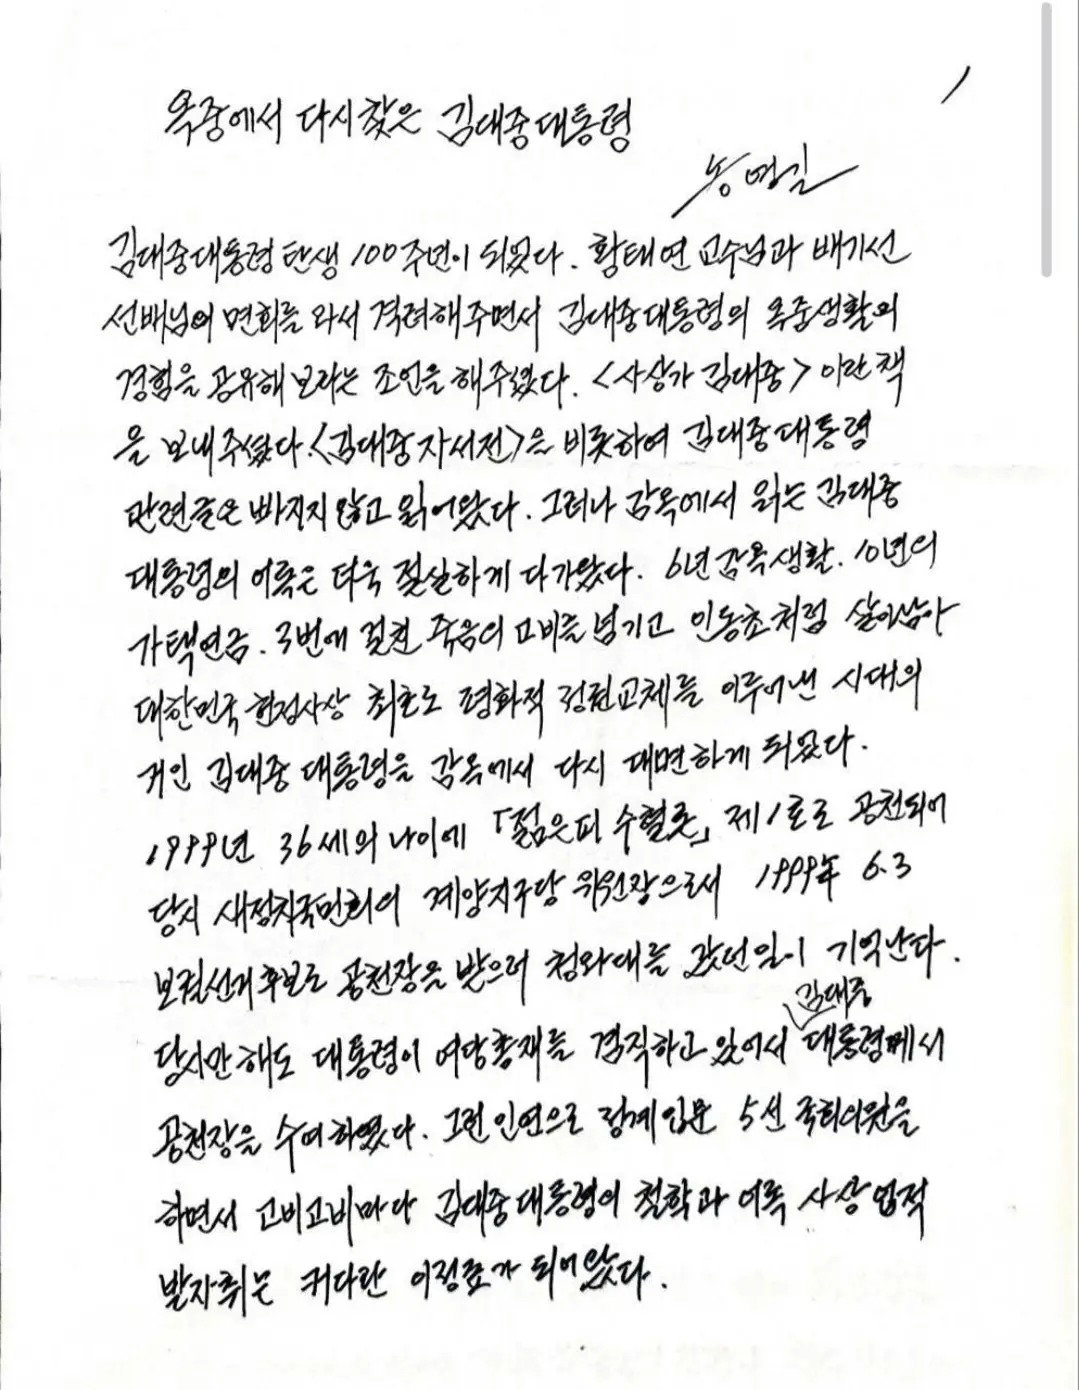 1
옥중에서 다시 찾은 김대중 대통령
송영길
김대중대통령 탄생 100주년이 되었다. 황태연 교수님과 배기선
선배님이 면회를 와서 격려해주면서 김대중대통령의 옥중생활의
경험을 공유해보라는 조언을 해주셨다. <사상가 김대중> 이란 책
을 보내주셨다. <김대중 자서전>을 비롯하여 김대중대통령
관련글은 빠지지 않고 읽어왔다. 그러나 감옥에서 읽는 김대중
대통령의 어록은 더욱 절실하게 다가왔다. 6년 감옥생활. 10년의
가택연금. 3번에 걸친 죽음의 고비를 넘기고 인동초처럼 살아남아
대한민국 헌정사상 최초로 평화적 정권교체를 이루어낸 시대의
거인 김대중 대통령을 감옥에서 다시 대면하게 되었다.
1999년 36세의 나이에 「젊은피 수혈론」 제1호로 공천되어
당시 새정치국민회의 계양지구당 위원장으로서 1999年 6.3
보궐선거 후보로 공천장을 받으러 청와대를 갔던 일이 기억난다.
김대중
당시만 해도 대통령이 여당총재를 겸직하고 있어서 대통령께서
공천장을 수여하였다. 그런 인연으로 정계입문 5선 국회의원을
하면서 고비고비마다 김대중대통령의 철학과 어록 사상 업적
발자취는 커다란 이정표가 되어왔다.